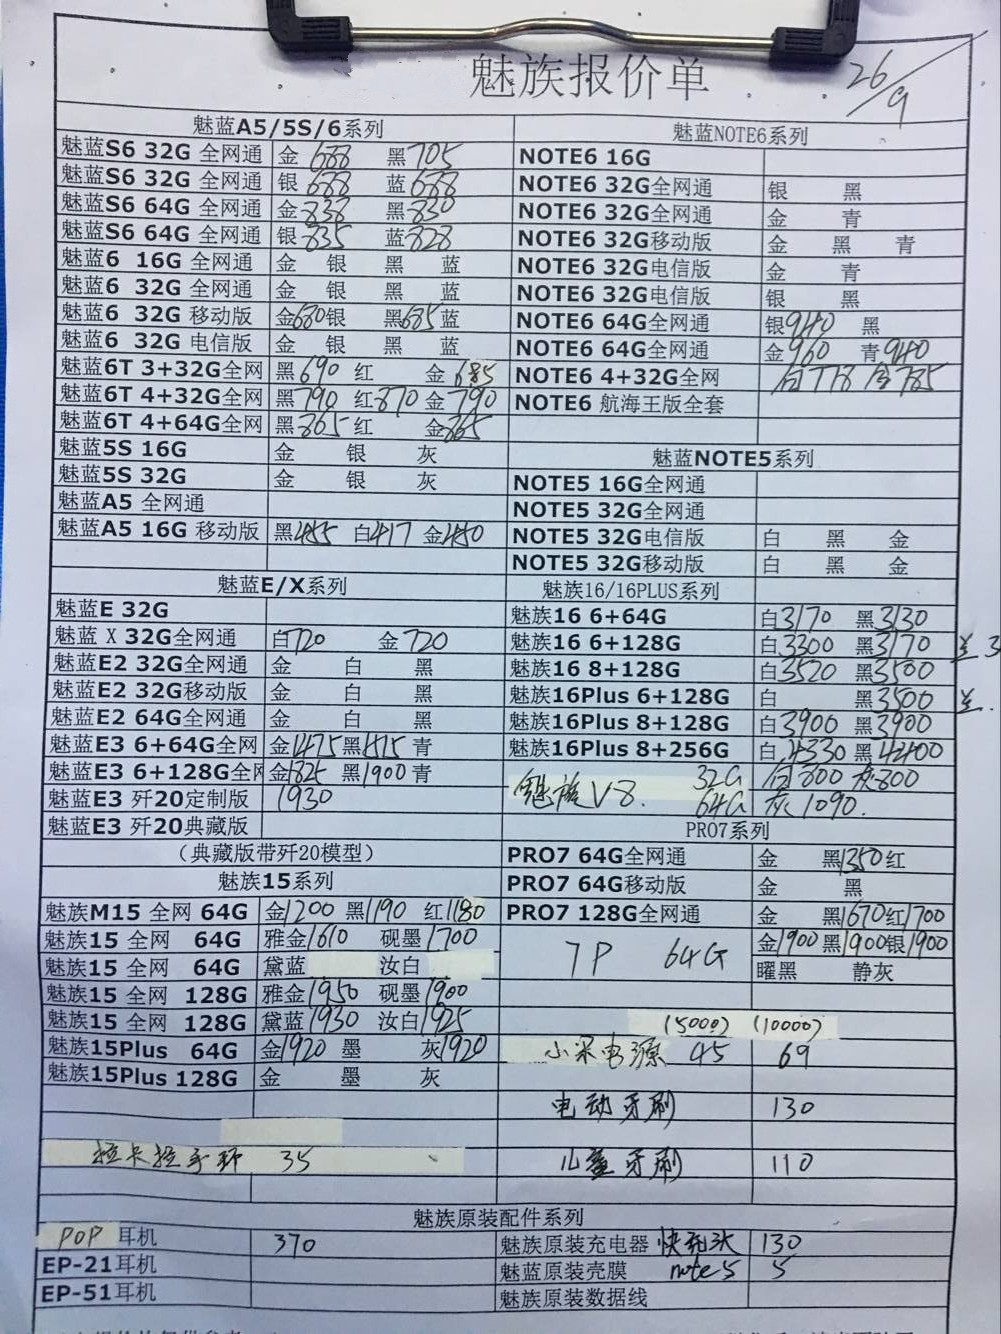 魅族报价单
26/9
魅蓝A5/5S/6系列
魅蓝S6 32G 全网通 金 688 黑 705
魅蓝S6 32G 全网通 银 688 蓝 688
魅蓝S6 64G 全网通 金 838 黑 830
魅蓝S6 64G 全网通 银 835 蓝 828
魅蓝6 16G 全网通 金 银 黑 蓝
魅蓝6 32G 全网通 金 银 黑 蓝
魅蓝6 32G 移动版 金680 银 黑685 蓝
魅蓝6 32G 电信版 金 银 黑 蓝
魅蓝6T 3+32G全网 黑690 红 金685
魅蓝6T 4+32G全网 黑790 红870 金790
魅蓝6T 4+64G全网 黑865 红 金865
魅蓝5S 16G 金 银 灰
魅蓝5S 32G 金 银 灰
魅蓝A5 全网通
魅蓝A5 16G 移动版 黑455 白417 金450
魅蓝E/X系列
魅蓝E 32G
魅蓝 X 32G全网通 白720 金720
魅蓝E2 32G全网通 金 白 黑
魅蓝E2 32G移动版 金 白 黑
魅蓝E2 64G全网通 金 白 黑
魅蓝E3 6+64G全网 金1475 黑 青
魅蓝E3 6+128G全网 金1825 黑1900 青
魅蓝E3 歼20定制版 1930
魅蓝E3 歼20典藏版
（典藏版带歼20模型）
魅族15系列
魅族M15 全网 64G 金1200 黑1190 红1180
魅族15 全网 64G 雅金1610 砚墨1700
魅族15 全网 64G 黛蓝 汝白
魅族15 全网 128G 雅金1950 砚墨1900
魅族15 全网 128G 黛蓝1930 汝白1925
魅族15Plus 64G 金1920 墨 灰1920
魅族15Plus 128G 金 墨 灰
拉卡拉手环 35
魅蓝NOTE6系列
NOTE6 16G
NOTE6 32G全网通 银 黑
NOTE6 32G全网通 金 青
NOTE6 32G移动版 金 黑 青
NOTE6 32G电信版 金 青
NOTE6 32G电信版 银 黑
NOTE6 64G全网通 银940 黑
NOTE6 64G全网通 金960 青940
NOTE6 4+32G全网 白778 金785
NOTE6 航海王版全套
魅蓝NOTE5系列
NOTE5 16G全网通
NOTE5 32G全网通
NOTE5 32G电信版 白 黑 金
NOTE5 32G移动版 白 黑 金
魅族16/16PLUS系列
魅族16 6+64G 白3170 黑3130
魅族16 6+128G 白3300 黑3170
魅族16 8+128G 白3520 黑3500
魅族16Plus 6+128G 白 黑3500
魅族16Plus 8+128G 白3900 黑3900
魅族16Plus 8+256G 白4330 黑4400
魅族V8. 32G 白800 灰800
64G 灰1090.
PRO7系列
PRO7 64G全网通 金 黑1350 红
PRO7 64G移动版 金 黑
PRO7 128G全网通 金 黑1670 红1700
7P 64G 金1900 黑1900 银1900
曜黑 静灰
(5000) (10000)
小米电源 45 69
电动牙刷 130
儿童牙刷 110
魅族原装配件系列
POP 耳机 370
EP-21耳机
EP-51耳机
魅族原装充电器 快充头 130
魅蓝原装壳膜 note5 5
魅族原装数据线